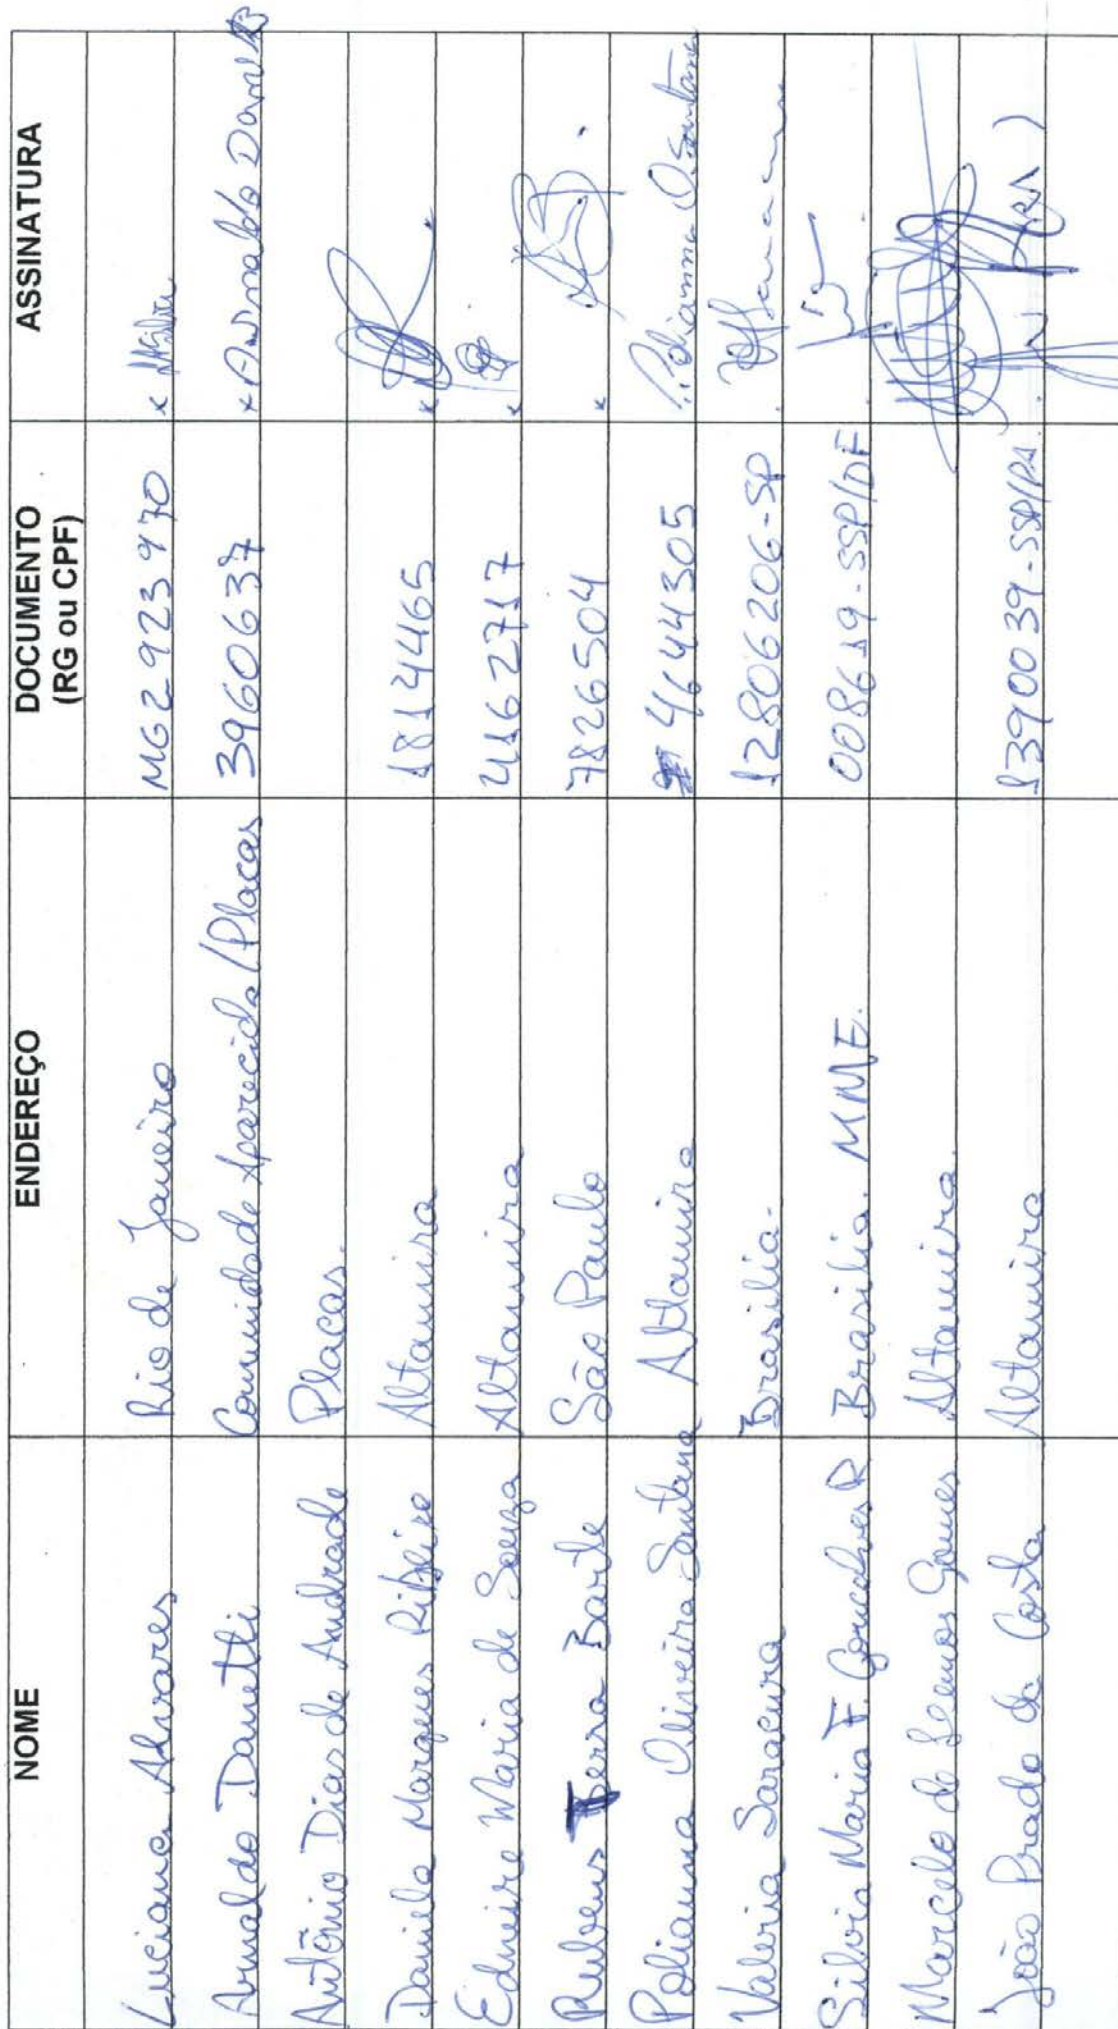 NOME ENDEREÇO DOCUMENTO (RG ou CPF) ASSINATURA
Luciana Alvares Rio de Janeiro MG2923970 x
Arnaldo Danetti Comunidade Aparecida/Placas 3960637 x Arnaldo
Antônio Dias de Andrade Placas.
Daniela Marques Ribeiro Altamira 1814465 x
Edneire Maria de Souza Altamira 4162717 x
Rubens Barile São Paulo 78265504 x
Polianna Oliveira Santana Altamira 4644305 Polianna O. Santana
Valeria Saraceura Brasilia. 12806206-SP
Silvia Maria F. Goncalves R Brasilia. MME. 008619-SSP/DF
Marcelo de Lemos Gomes Altamira.
João Prado da Costa Altamira 1390039-SSP/PA.